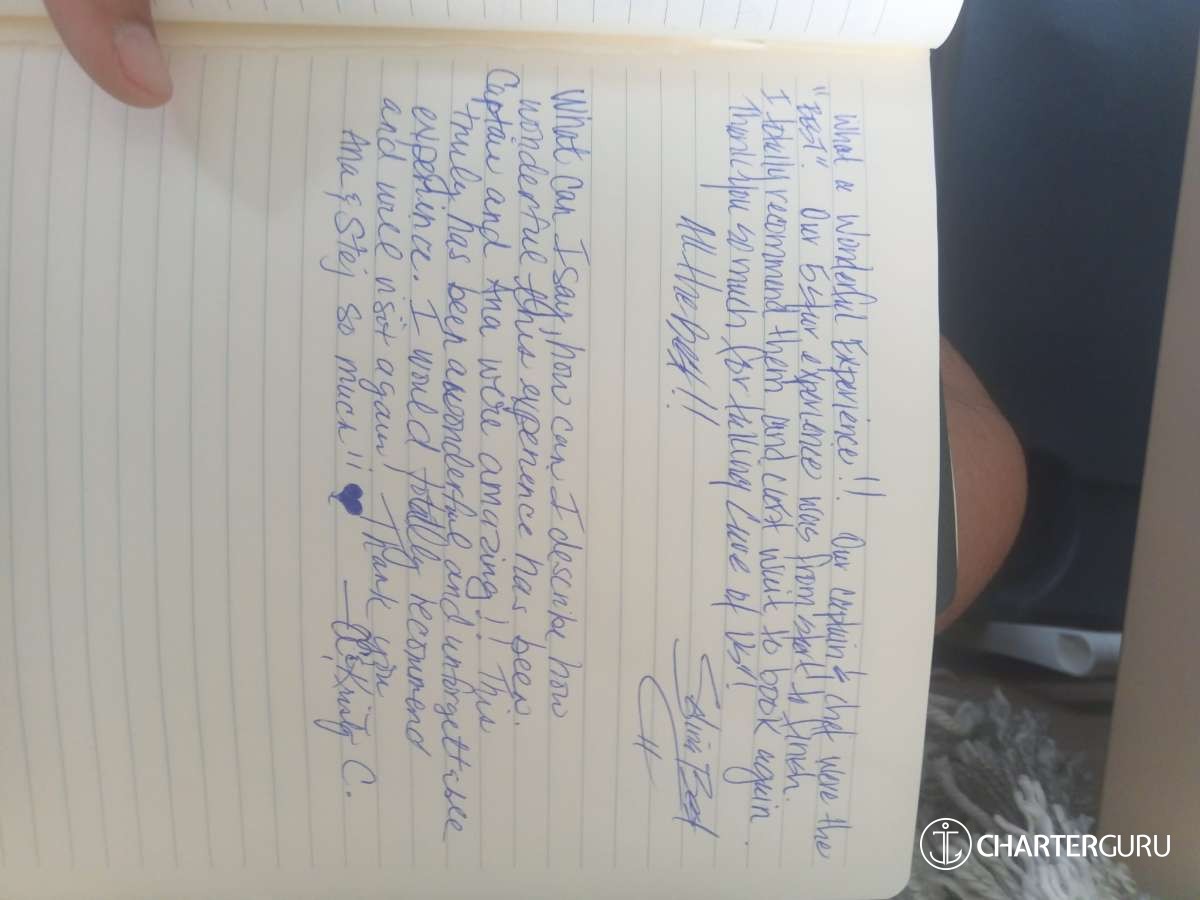 What a Wonderful Experience!! Our captain & chef were the
"best". Our 5 star experience was from start to finish.
I totally recommend them and cant wait to book again.
Thank you so much for taking care of us!
All the Best!!
What Can I say, how can I describe how
wonderful this experience has been.
Captain and Ana were amazing!! This
truly has been a wonderful and unforgettable
experience. I would totally recommend
and will visit again! Thank you
Ana & Stej so much!! ♥
Kristy C.
CHARTERGURU